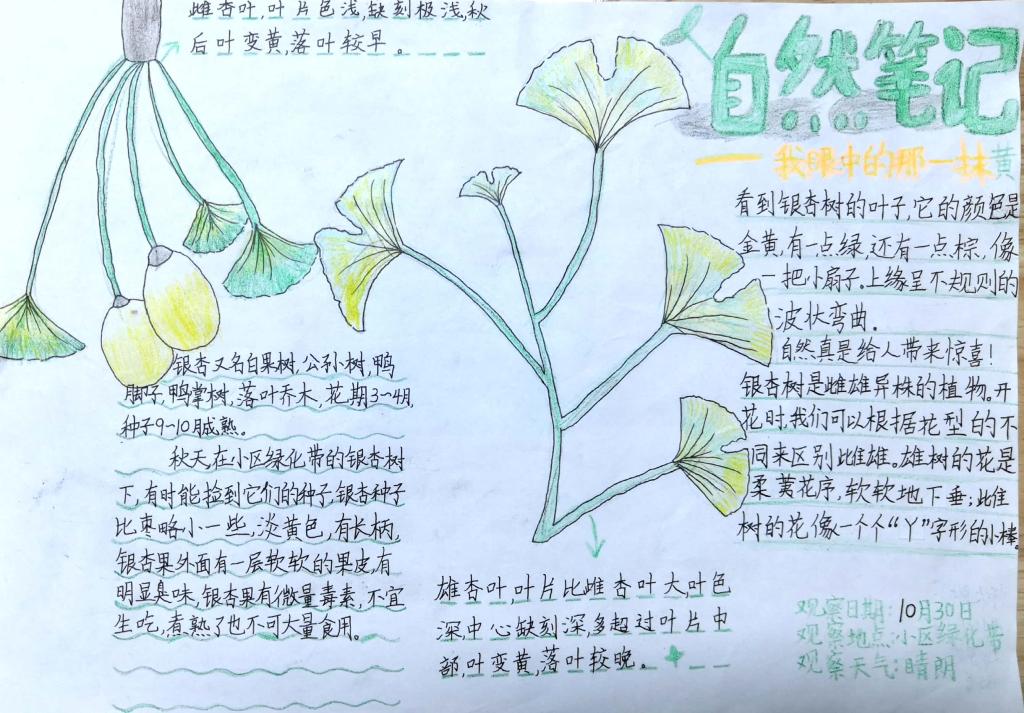 雌杏叶,叶片色浅,缺刻极浅,秋
后叶变黄,落叶较早。
自然笔记
——我眼中的那一抹黄
看到银杏树的叶子,它的颜色是
金黄,有一点绿,还有一点棕,像
一把小扇子。上缘呈不规则的
波状弯曲.
自然真是给人带来惊喜!
银杏树是雌雄异株的植物。开
花时,我们可以根据花型的不
同来区别雌雄。雄树的花是
柔荑花序,软软地下垂;雌
树的花像一个个“丫”字形的小棒。
银杏又名白果树,公孙树,鸭
脚子,鸭掌树,落叶乔木,花期3~4月,
种子9~10月成熟。
秋天,在小区绿化带的银杏树
下,有时能捡到它们的种子,银杏种子
比枣略小一些,淡黄色,有长柄,
银杏果外面有一层软软的果皮,有
明显臭味,银杏果有微量毒素,不宜
生吃,煮熟了也不可大量食用。
雄杏叶,叶片比雌杏叶大,叶色
深中心缺刻深,多超过叶片中
部,叶变黄,落叶较晚。
观察日期:10月30日
观察地点:小区绿化带
观察天气:晴朗